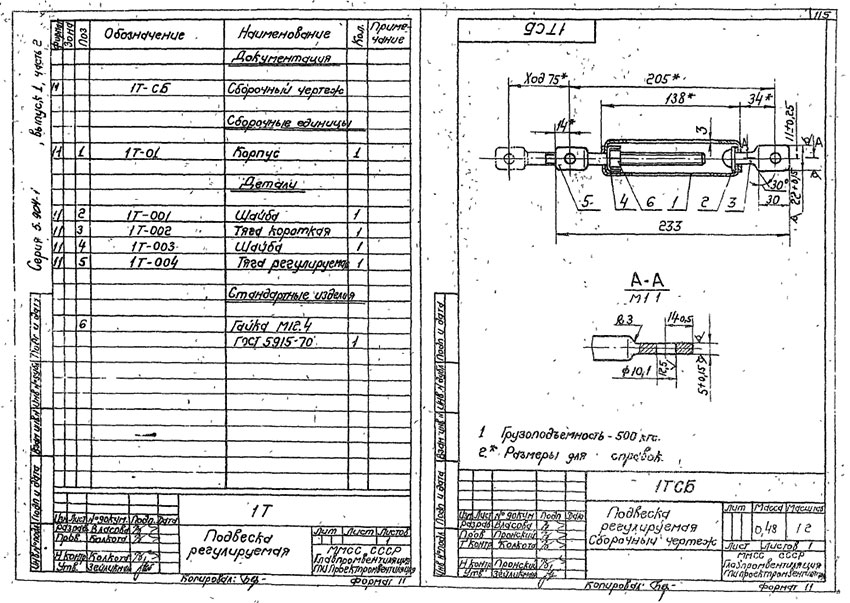 Серия 5.904-1, выпуск 1, часть 2
Формат Зона Поз Обозначение Наименование Кол. Примечание
Документация
11 1Т-СБ Сборочный чертеж
Сборочные единицы
11 1 1Т-01 Корпус 1
Детали
11 2 1Т-001 Шайба 1
11 3 1Т-002 Тяга короткая 1
11 4 1Т-003 Шайба 1
11 5 1Т-004 Тяга регулируемая 1
Стандартные изделия
6 Гайка М12.4
ГОСТ 5915-70 1
1Т
Изм Лист № докум. Подп. Дата
Разраб Власова
Пров. Колкота
Н контр Колкота
Утв. Зейликман
Подвеска
регулируемая
Лит Лист Листов
ММСС СССР
Главпромвентиляция
ГПИ Проектпромвентиляция
Копировал:
Формат 11
Инв № подл Подп и дата Взам инв № Инв № дубл Подп и дата
115
1ТСБ
Ход 75*
205*
138*
34*
14*
3
11±0,25
А
А
30°
22±0,15
30
5 4 6 1 2 3
233
А-А
М1 1
R3
14 0,5
ф10,1
12,5
5±0,15
1 Грузоподъемность - 500 кгс.
2.* Размеры для справок.
1ТСБ
Изм Лист № докум Подп Дата
Разраб Власова
Пров Пронский
Т контр Колкота
Н контр Пронский
Утв Зейликман
Подвеска
регулируемая
Сборочный чертеж
Лит Масса Масштаб
0,48 1 2
Лист Листов 1
ММСС СССР
Главпромвентиляция
ГПИ проектпромвентиляция
Копировал:
Формат 11
Инв № подл Подп и дата Взам инв № Инв № дубл Подп и дата